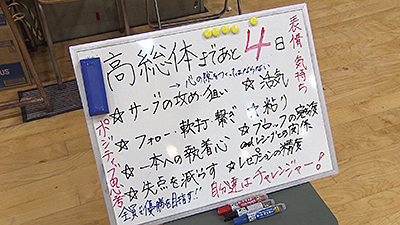 高総体まであと4日
→心の隙をつくってはならない
表情、気持ち
ポジティブ思考
☆サーブの攻め・狙い
☆活気
☆フォロー・軟打・繋ぎ
☆粘り
☆一本への執着心
☆ブロックの完成
andレシーブとの関係
☆失点を減らす
☆レセプションの
全員で優勝を目指す!!
自分達はチャレンジャー!